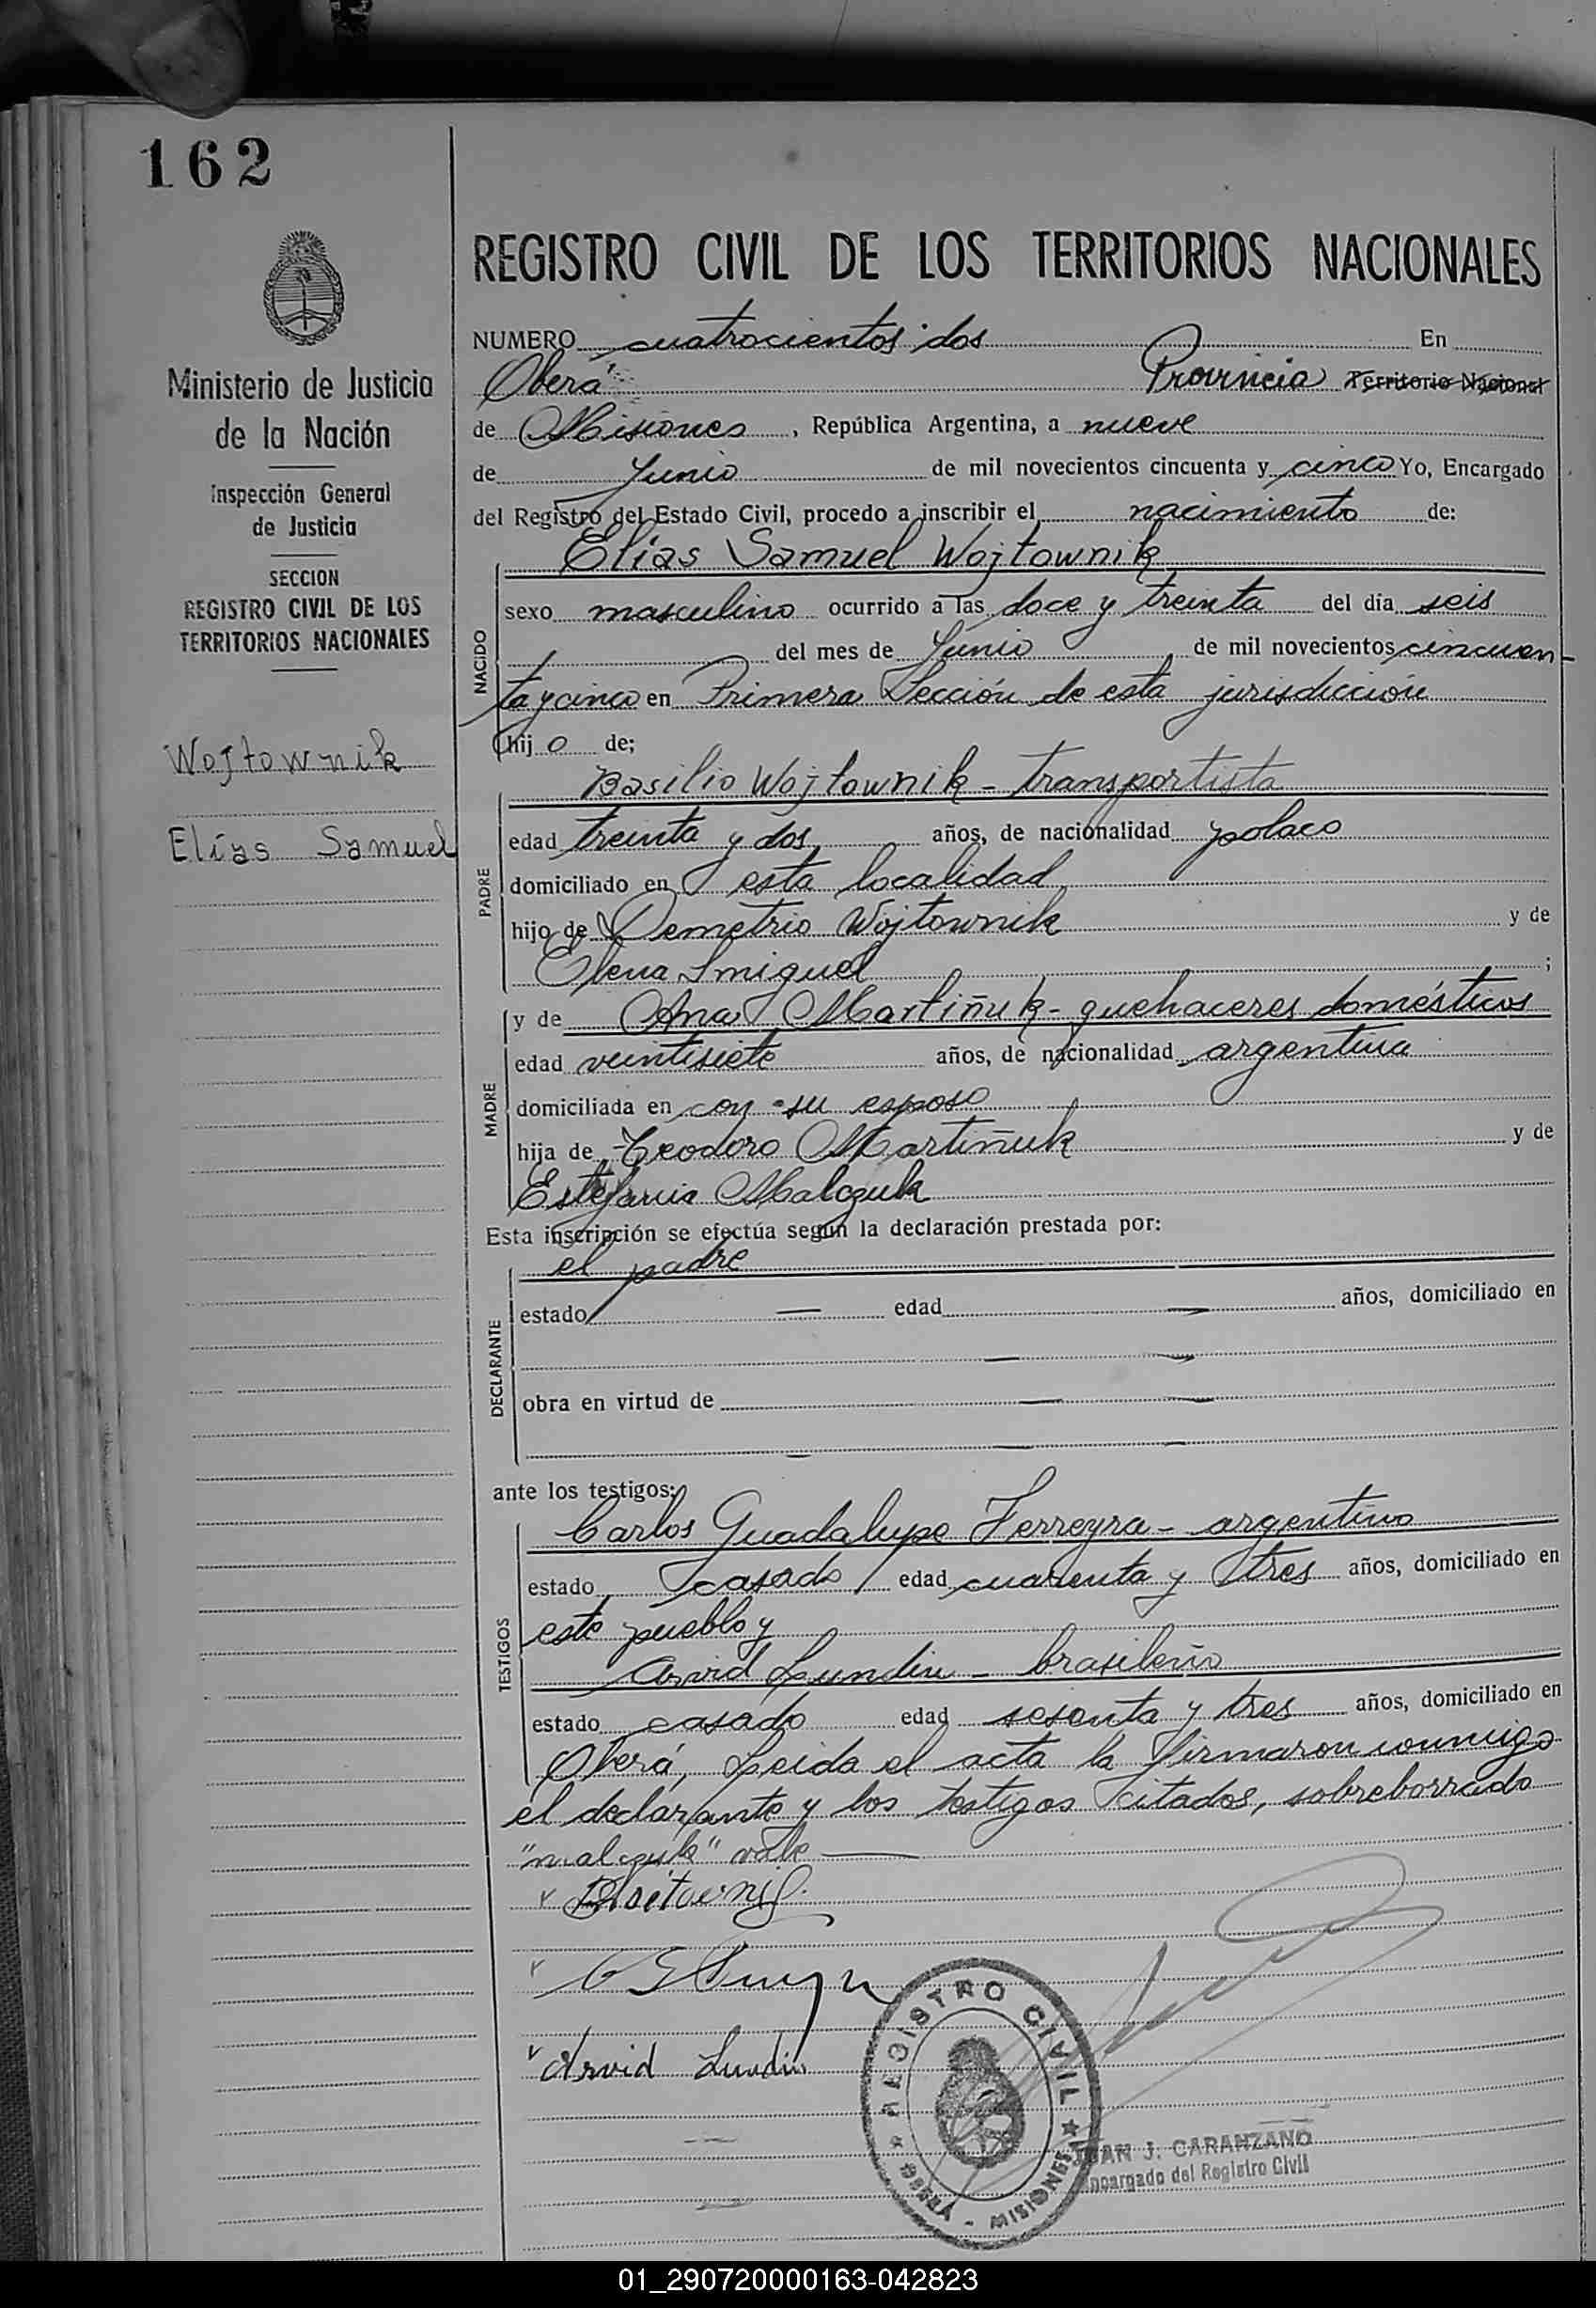 162
REGISTRO CIVIL DE LOS TERRITORIOS NACIONALES
Ministerio de Justicia
de la Nación
Inspección General
de Justicia
SECCION
REGISTRO CIVIL DE LOS
TERRITORIOS NACIONALES
Wojtownik
Elías Samuel
NUMERO cuatrocientos dos En
Oberá Provincia Territorio Nacional
de Misiones, República Argentina, a nueve
de Junio de mil novecientos cincuenta y cinco Yo, Encargado
del Registro del Estado Civil, procedo a inscribir el nacimiento de:
NACIDO
Elías Samuel Wojtownik
sexo masculino ocurrido a las doce y treinta del día seis
del mes de Junio de mil novecientos cincuen-
ta y cinco en Primera Sección de esta jurisdicción
hijo de;
PADRE
Basilio Wojtownik - transportista
edad treinta y dos años, de nacionalidad polaco
domiciliado en esta localidad
hijo de Demetrio Wojtownik y de
Elena Smiguel ;
MADRE
y de Ana Martiñuk - quehaceres domésticos
edad veintisiete años, de nacionalidad argentina
domiciliada en con su esposo
hija de Teodoro Martiñuk y de
Estefania Malczuk
Esta inscripción se efectúa según la declaración prestada por:
DECLARANTE
el padre
estado — edad — años, domiciliado en
obra en virtud de
ante los testigos:
TESTIGOS
Carlos Guadalupe Ferreyra - argentino
estado casado edad cuarenta y tres años, domiciliado en
este pueblo y
Arvid Lundin - brasileño
estado casado edad sesenta y tres años, domiciliado en
Oberá, Leida el acta la firmaron conmigo
el declarante y los testigos citados, sobreborrado
"malczuk" vale —
Arvid Lundin
REGISTRO CIVIL
OBERA - MISIONES
JUAN J. CARANZANO
Encargado del Registro Civil
01_290720000163-042823